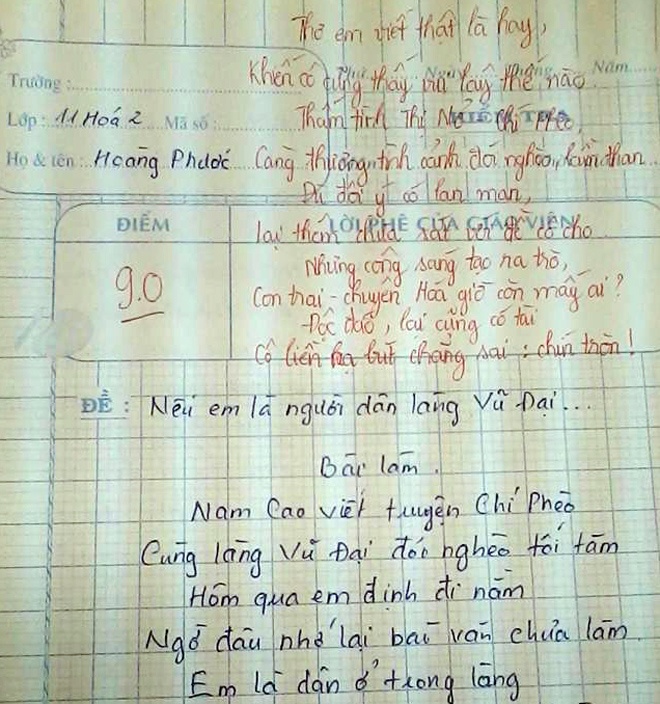 Thơ em viết thật là hay,
Khiến cô cũng thấy vui lây thế nào
Năm
Trường :
Thảm tình Thị Nở Chí Phèo,
Lớp : 11 Hoá 2 Mã số :
Họ & tên : Hoàng Phước
Càng thương tình cảnh đói nghèo, lầm than.
Dù đôi ý có lan man,
ĐIỂM
LỜI PHÊ CỦA GIÁO VIÊN
lại thêm chưa sát với đề cô cho
9.0
Nhưng công sáng tạo ra trò,
Con trai - chuyên Hoá giờ còn mấy ai?
Độc đáo, lại cũng có tài
Cô liền hạ bút chẳng sai : chín tròn!
ĐỀ : Nếu em là người dân làng Vũ Đại...
Bài làm.
Nam Cao viết truyện Chí Phèo
Cùng làng Vũ Đại đói nghèo tối tăm
Hôm qua em định đi nằm
Ngờ đâu nhớ lại bài văn chưa làm
Em là dân ở trong làng